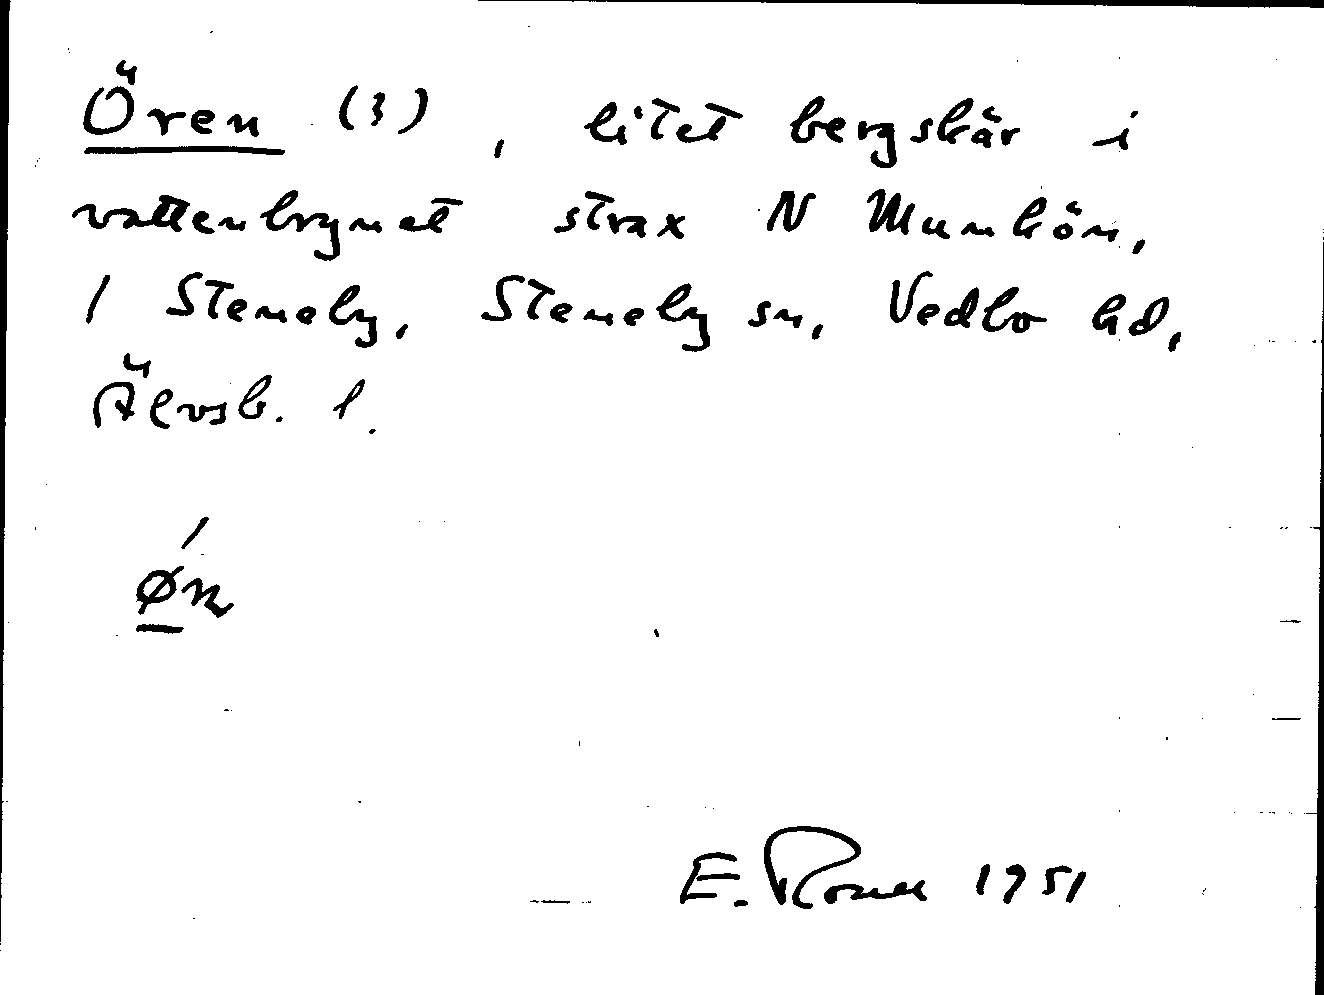 Ören (3), litet bergskär i
vattenbrynet strax N Munkön,
/ Steneby, Steneby sn, Vedbo hd,
Älvsb. l.
E. 1951